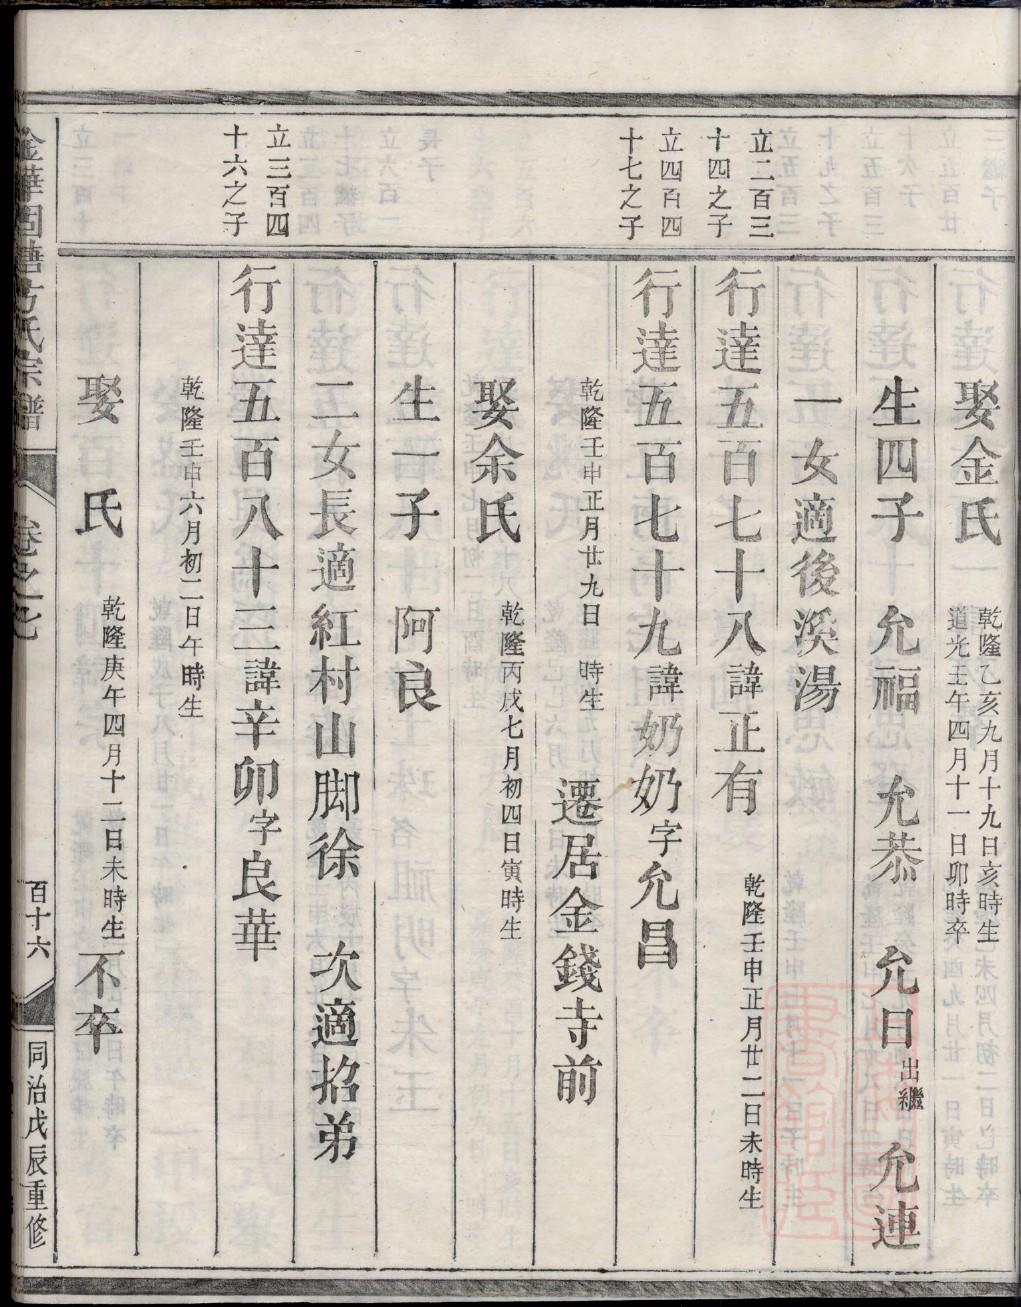 娶金氏 乾隆乙亥九月十九日亥時生
道光壬午四月十一日卯時卒
生四子 允福 允恭 允日出繼 允連
一女適後溪湯
立二百三
十四之子
行達五百七十八諱正有 乾隆壬申正月廿二日未時生
立四百四
十七之子
行達五百七十九諱奶奶字允昌
乾隆壬申正月廿九日 時生 遷居金錢寺前
娶余氏 乾隆丙戌七月初四日寅時生
生一子 阿良
二女長適紅村山脚徐 次適招弟
立三百四
十六之子
行達五百八十三諱辛卯字良華
乾隆壬申六月初二日午時生
娶 氏 乾隆庚午四月十二日未時生 不卒
金華固塘方氏宗譜 卷之七 百十六 同治戊辰重修